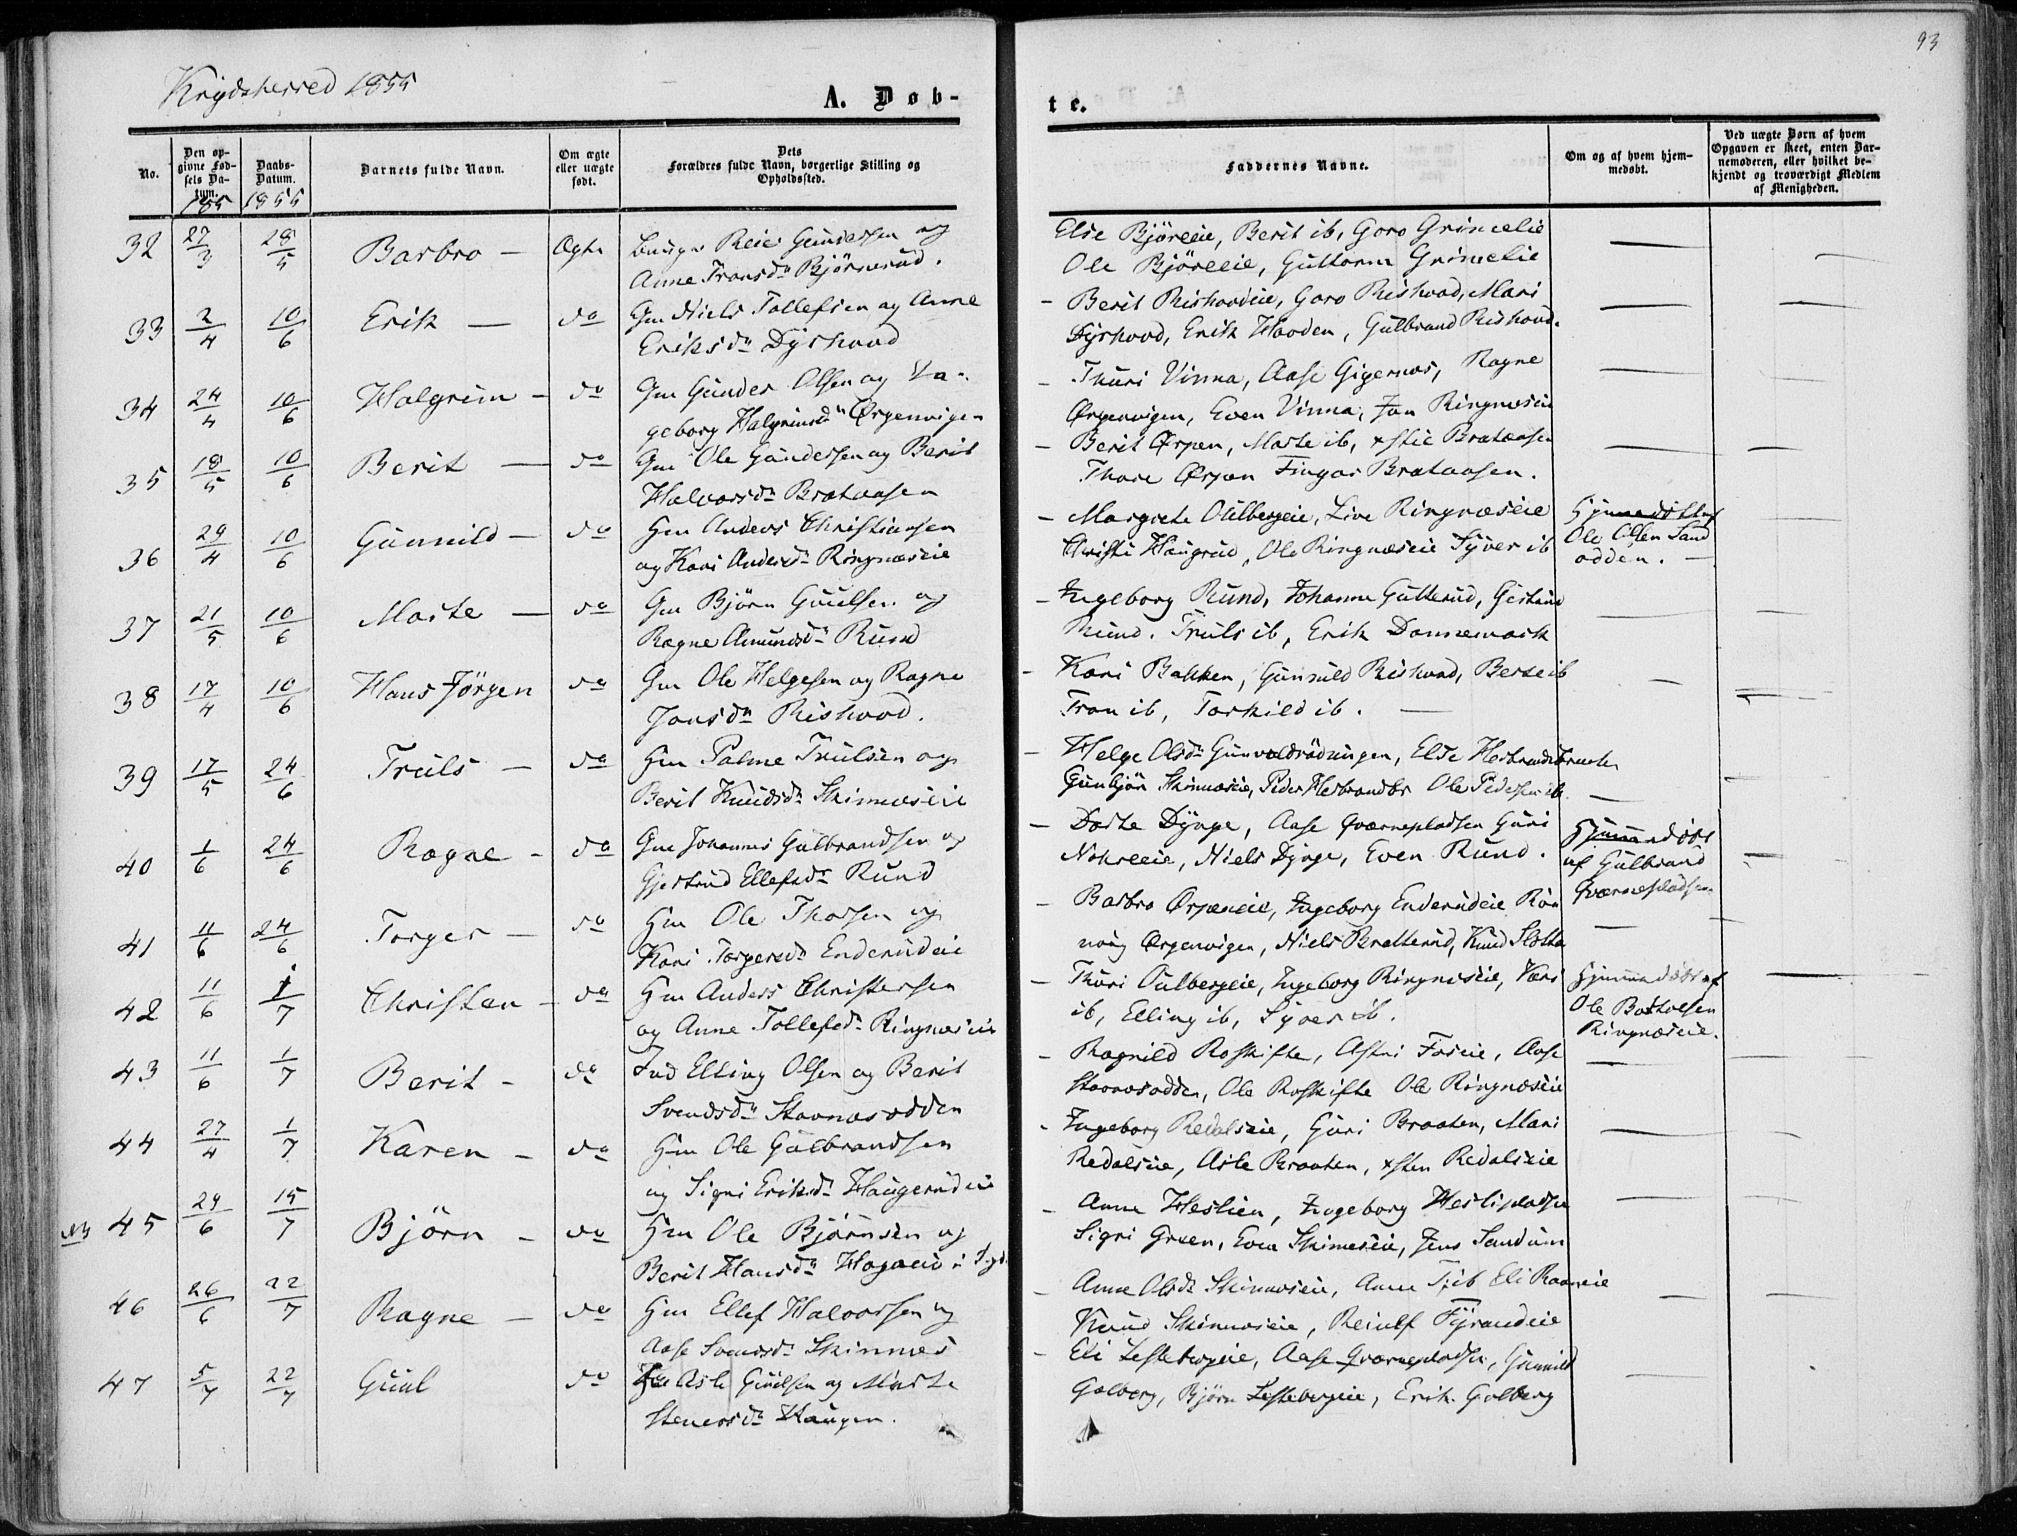 93
Krydsherred 1855
A. Døb-
te.
No.
Den op-
givne Fød-
sels Da-
tum.
1855
Daabs-
Datum.
1855
Barnets fulde Navn.
Om ægte
eller uægte
født.
Dets
Forældres fulde Navn, borgerlige Stilling og
Opholdssted.
Faddernes Navne.
Om og af hvem hjem-
medøbt.
Ved uægte Børn af hvem
Opgaven er skeet, enten Bar-
nemoderen, eller hvilket be-
kjendt og troværdigt Medlem
af Menigheden.
32 27/3 28/5 Barbro - Ægte Reier Gundersen og
Anne Transdr Bjørnerud.
Else Bjøreeie, Berit ib, Goro Grimelie
Ole Bjøreeie, Guttorm Grimelie
33 2/4 10/6 Erik - do Gm Niels Tollefsen og Anne
Eriksdr Dyrhovd
- Berit Rishovdeie, Goro Rishovd, Mari
Dyrhovd, Erik Hovden, Gulbrand Rishovd.
34 24/4 10/6 Halgrim - do Gm Gunder Olsen og In-
geborg Halgrimsdr Ørgenvigen
- Thuri Vinna, Aase Gigernæs, Ragne
Ørgenvigen, Even Vinna, Jon Ringnæseie
35 18/5 10/6 Berit - do Gm Ole Gundersen og Berit
Halvorsdr Brataasen
- Berit Ørpen, Marte ib, Brataasen
Thore Ørpen Fingar Brataasen.
36 29/4 10/6 Gunnild - do Hm Anders Christiansen
og Kari Andersdr Ringnæseie
- Margrete Oulbergeie, Live Ringnæseie
Christi Haugrud, Ole Ringnæseie Syver ib
Hjemmedøbt af
Ole Olsen Sand
odden. -
37 21/5 10/6 Marte - do Gm Bjørn Guulsen og
Ragne Amundsdr Rund
- Ingeborg Rund, Johanne Gutterud, Gjertrud
Rund. Truls ib, Erik Dannemark
38 17/4 10/6 Hans Jørgen do Gm Ole Helgesen og Ragne
Jonsdr Rishovd.
- Kari Bakken, Gunnild Rishovd, Berte ib
Tron ib, Torkild ib. -
39 17/5 24/6 Truls - do Hm Palme Trulsen og
Berit Knudsdr Skinnæseie
- Helge Olsdr Gunvaldrødningen, Else Hesbrandsbraaten
Gunbjør Skinnæseie, Peder Hesbrandbr Ole Pedersen ib
40 1/6 24/6 Ragne - do Gm Johannes Gulbrandsen og
Gjertrud Ellefsdr Rund
- Dorte Dynge, Aase Qværnepladsen Guri
Niels Dynge, Even Rund.
Hjemmedøbt
af Gulbrand
Qværnepladsen
41 11/6 24/6 Torger - do Hm Ole Thorsen og
Kari Torgersdr Enderudeie
- Barbro Ørpeneie, Ingeborg Enderudeie Røn
noug Ørgenvigen, Niels Bratterud, Knud Slotta
42 11/6 1/7 Christen - do Hm Anders Christensen
og Anne Tollefsdr Ringnæseie
- Thuri Oulbergeie, Ingeborg Ringnæseie, Kari
ib, Elling ib, Syver ib.
Hjemmedøbt af
Ole Botolfsen
Ringnæseie.
43 11/6 1/7 Berit - do Ind Elling Olsen og Berit
Svendsdr Stavnæsodden
- Ragnild Roskifte, Astri Foseie, Aase
Stavnæsodden, Ole Roskifte Ole Ringnæseie
44 27/4 1/7 Karen - do Hm Ole Gulbrandsen
og Sigri Eriksdr Haugerudeie
- Ingeborg Redalseie, Guri Braaten, Mari
Redalseie, Asle Braaten, Redalseie
NB 45 29/6 15/7 Bjørn - do Hm Ole Bjørnsen og
Berit Hansdr Hagaeie i Sigd.
- Anne Heslien, Ingeborg Heslipladsen
Sigri Green, Even Skinneseie, Jens Sandum
46 26/6 22/7 Ragne - do Hm Ellef Halvorsen og
Aase Svendsdr Skinnes
- Anne Olsdr Skinnæseie, Anne T. ib Eli Raaneie
Knud Skinnæseie, Reiulf Fyrandeie
47 5/7 22/7 Guul do Asle Guulsen og Marte
Stenersdr Haugen.
- Eli Leshebergeie, Aase Qværnepladsen, Gunnild
Golberg, Bjørn Leshebergeie, Erik Golberg